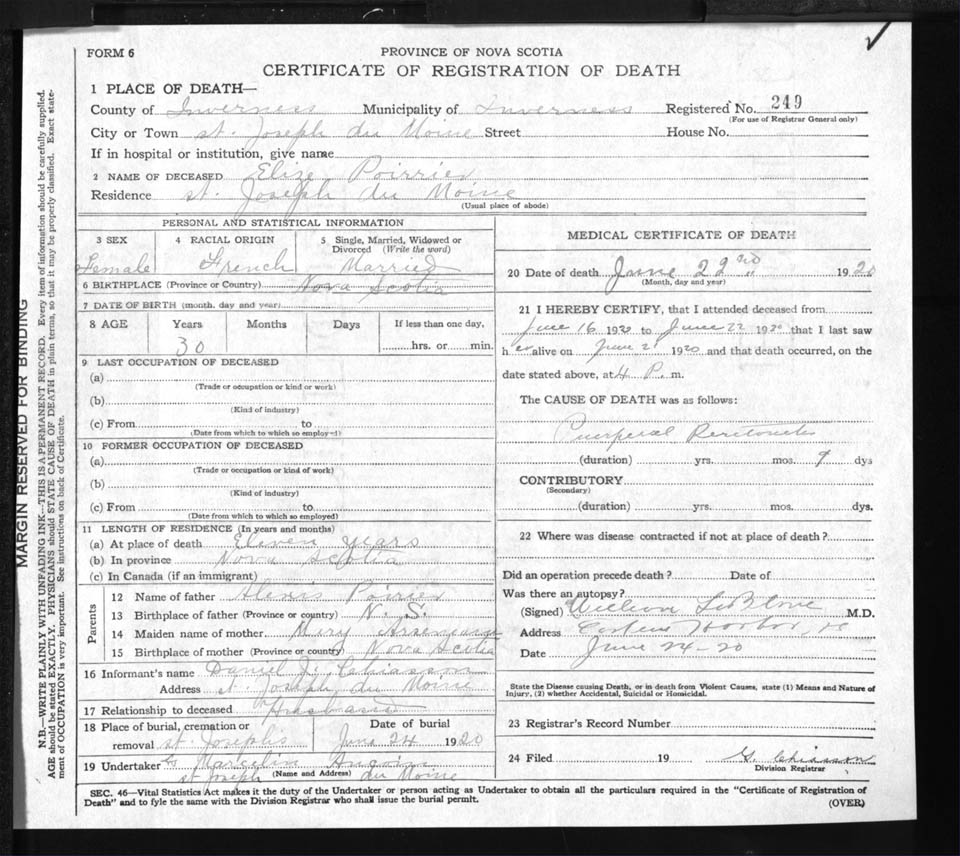 FORM 6
PROVINCE OF NOVA SCOTIA
CERTIFICATE OF REGISTRATION OF DEATH
1 PLACE OF DEATH—
County of Inverness Municipality of Inverness Registered No. 249
(For use of Registrar General only)
City or Town St. Joseph du Moine Street House No.
If in hospital or institution, give name
2 NAME OF DECEASED Elize Poirrier
Residence St. Joseph du Moine
(Usual place of abode)
PERSONAL AND STATISTICAL INFORMATION
3 SEX 4 RACIAL ORIGIN 5 Single, Married, Widowed or Divorced (Write the word)
Female French Married
6 BIRTHPLACE (Province or Country) Nova Scotia
7 DATE OF BIRTH (month, day and year)
8 AGE Years Months Days If less than one day,
30 hrs. or min.
9 LAST OCCUPATION OF DECEASED
(a)
(Trade or occupation or kind or work)
(b)
(Kind of industry)
(c) From to
(Date from which to which so employed)
10 FORMER OCCUPATION OF DECEASED
(a)
(Trade or occupation or kind of work)
(b)
(Kind of industry)
(c) From to
(Date from which to which so employed)
11 LENGTH OF RESIDENCE (In years and months)
(a) At place of death Eleven years
(b) In province Nova Scotia
(c) In Canada (if an immigrant)
Parents
12 Name of father Alexis Poirier
13 Birthplace of father (Province or country) N. S.
14 Maiden name of mother Mary Arsenault
15 Birthplace of mother (Province or country) Nova Scotia
16 Informant's name Daniel J. Chiasson
Address St. Joseph du Moine
17 Relationship to deceased Husband
18 Place of burial, cremation or Date of burial
removal St. Josephs June 24 1920
19 Undertaker Marcelin
(Name and Address)
St Joseph du Moine
MEDICAL CERTIFICATE OF DEATH
20 Date of death June 22nd 1920
(Month, day and year)
21 I HEREBY CERTIFY, that I attended deceased from
June 16 1920 to June 22 1920 that I last saw
her alive on June 21 1920 and that death occurred, on the
date stated above, at 4 P. m.
The CAUSE OF DEATH was as follows:
Puerperal Peritonitis
(duration) yrs. mos. 9 dys
CONTRIBUTORY
(Secondary)
(duration) yrs. mos. dys.
22 Where was disease contracted if not at place of death?
Did an operation precede death? Date of
Was there an autopsy?
(Signed) William LeBlanc M.D.
Address Harbor,
Date June 24-20
State the Disease causing Death, or in death from Violent Causes, state (1) Means and Nature of
Injury, (2) whether Accidental, Suicidal or Homicidal.
23 Registrar's Record Number
24 Filed 19 G. Chiasson
Division Registrar
SEC. 46—Vital Statistics Act makes it the duty of the Undertaker or person acting as Undertaker to obtain all the particulars required in the "Certificate of Registration of
Death" and to fyle the same with the Division Registrar who shall issue the burial permit.
(OVER)
MARGIN RESERVED FOR BINDING
N.B.—WRITE PLAINLY WITH UNFADING INK—THIS IS A PERMANENT RECORD. Every item of information should be carefully supplied.
AGE should be stated EXACTLY. PHYSICIANS should STATE CAUSE OF DEATH in plain terms, so that it may be properly classified. Exact state-
ment of OCCUPATION is very important. See instructions on back of Certificate.